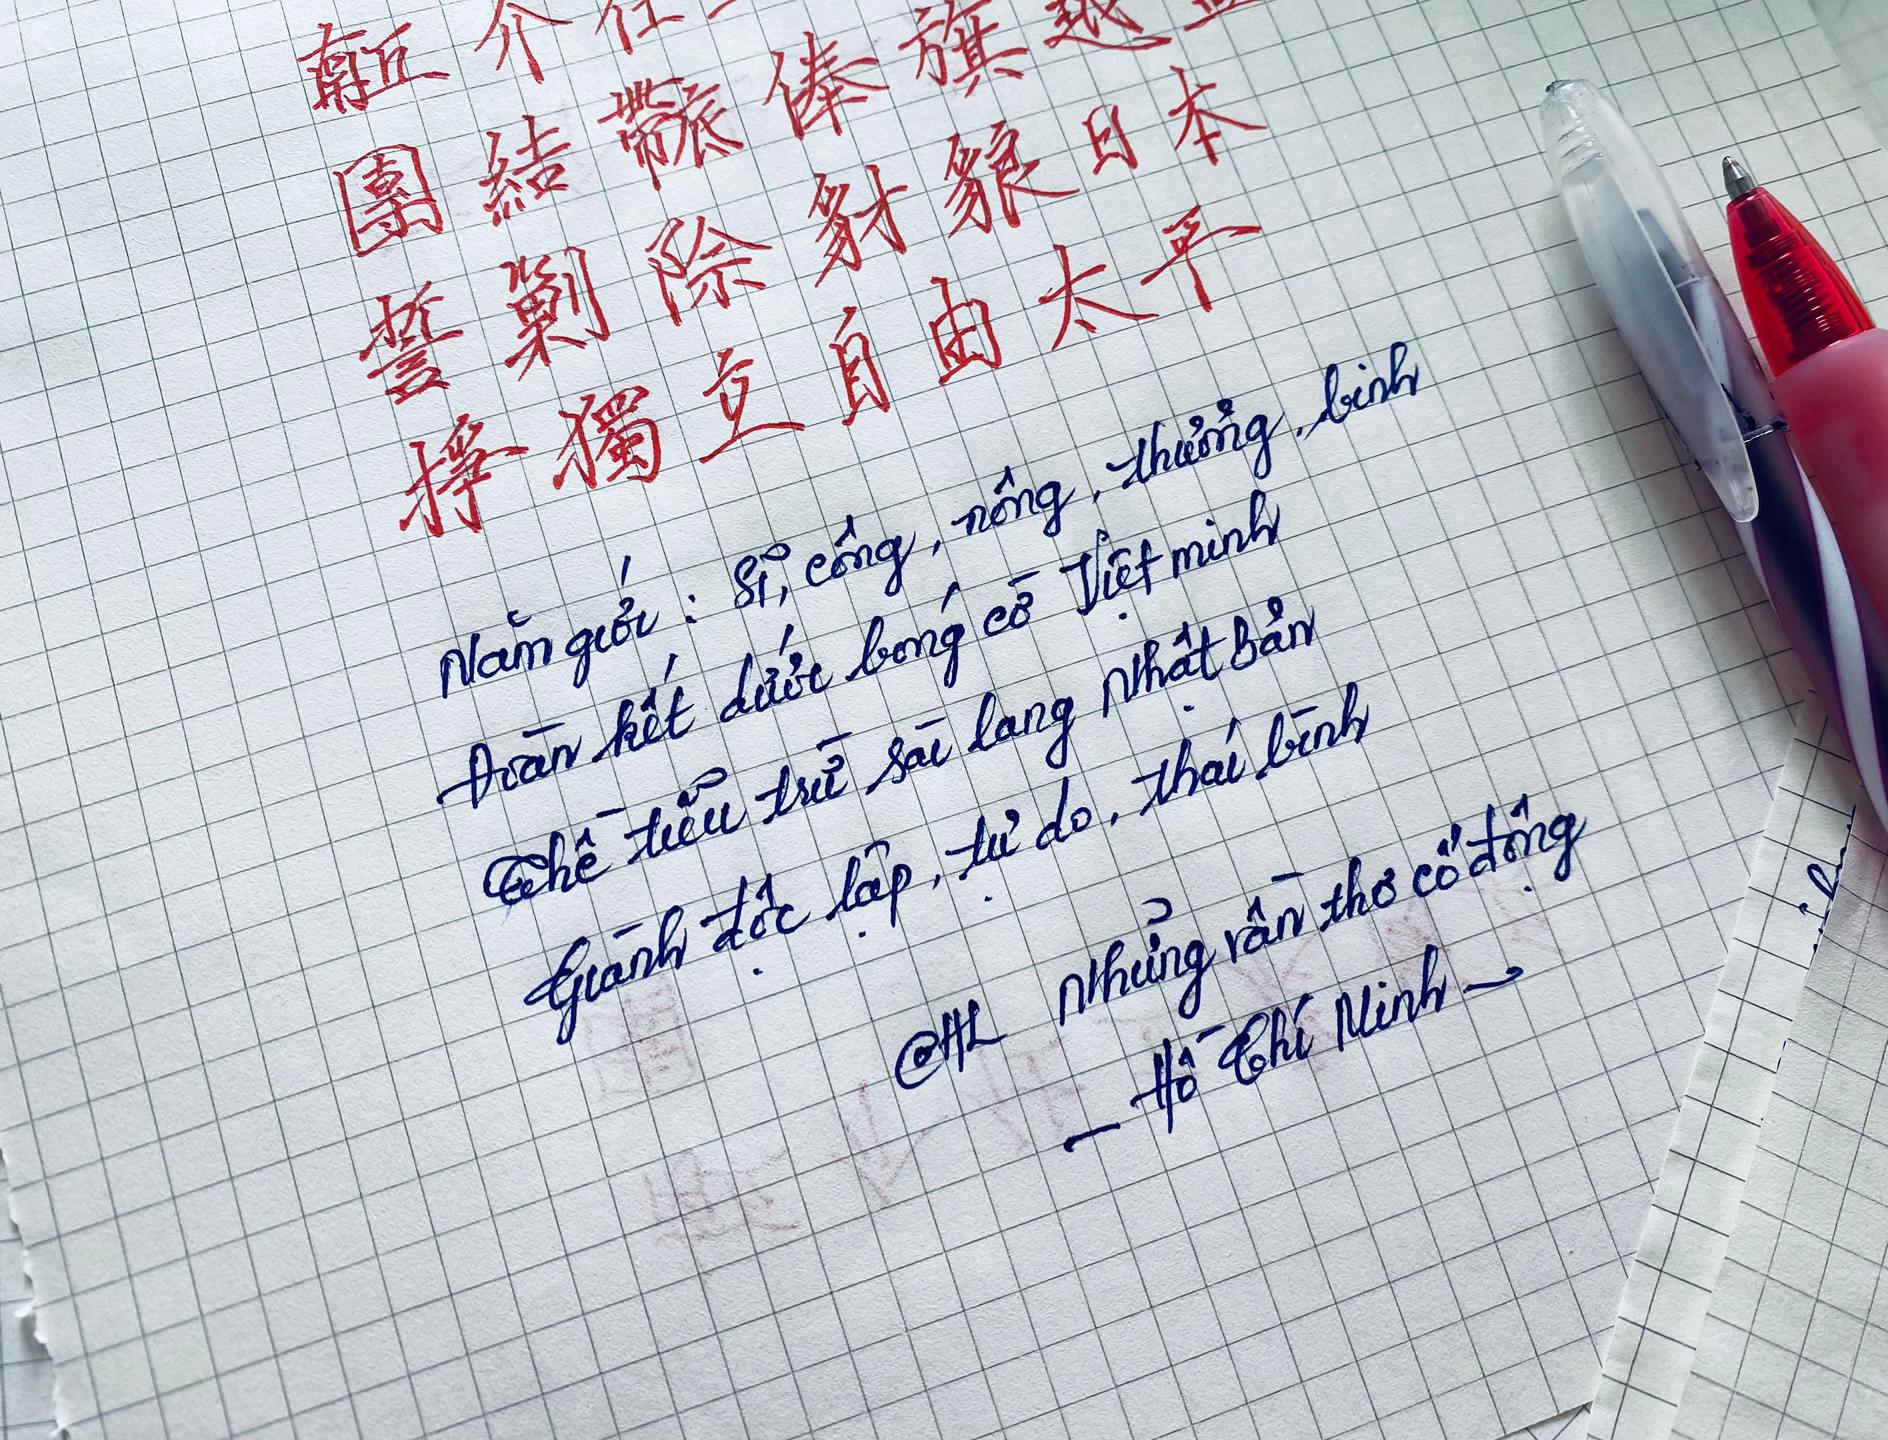 介任
團結𨑜俸旗越
誓剿除豺狼日本
掙獨立自由太平
Năm giới: Sĩ, công, nông, thương, binh
Đoàn kết dưới bóng cờ Việt minh
Thề tiễu trừ sài lang Nhật Bản
Giành độc lập, tự do, thái bình
@HL Những vần thơ cổ động
— Hồ Chí Minh —